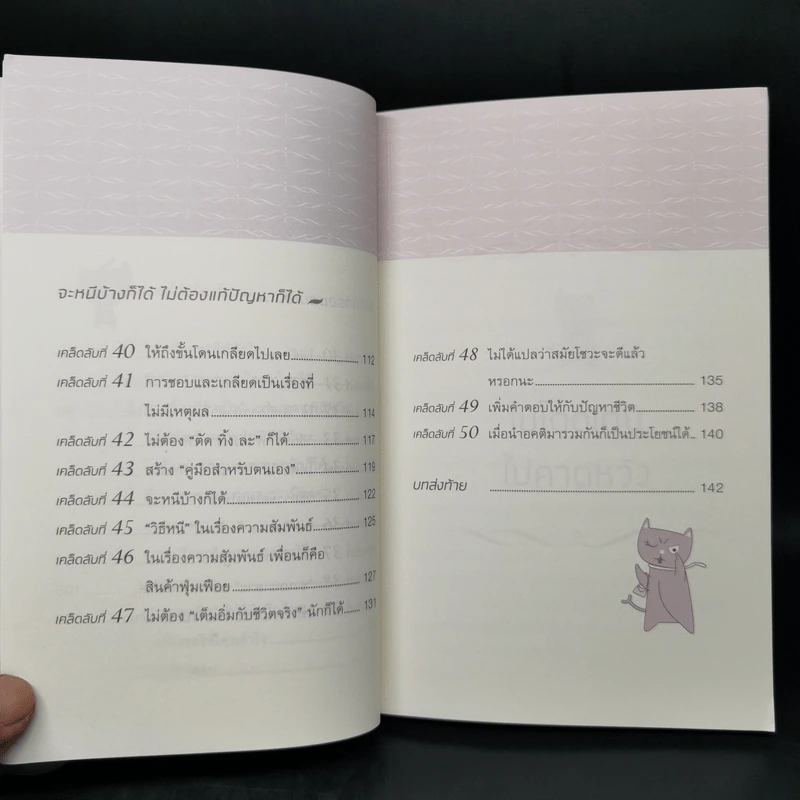 จะหนีบ้างก็ได้ ไม่ต้องแก้ปัญหาก็ได้
เคล็ดลับที่ 40 ให้ถึงขั้นโดนเกลียดไปเลย 112
เคล็ดลับที่ 41 การชอบและเกลียดเป็นเรื่องที่
ไม่มีเหตุผล 114
เคล็ดลับที่ 42 ไม่ต้อง “ตัด ทิ้ง ละ” ก็ได้ 117
เคล็ดลับที่ 43 สร้าง “คู่มือสำหรับตนเอง” 119
เคล็ดลับที่ 44 จะหนีบ้างก็ได้ 122
เคล็ดลับที่ 45 “วิธีหนี” ในเรื่องความสัมพันธ์ 125
เคล็ดลับที่ 46 ในเรื่องความสัมพันธ์ เพื่อนก็คือ
สินค้าฟุ่มเฟือย 127
เคล็ดลับที่ 47 ไม่ต้อง “เต็มอิ่มกับชีวิตจริง” นักก็ได้ 131
เคล็ดลับที่ 48 ไม่ได้แปลว่าสมัยโชวะจะดีแล้ว
หรอกนะ 135
เคล็ดลับที่ 49 เพิ่มคำตอบให้กับปัญหาชีวิต 138
เคล็ดลับที่ 50 เมื่อนำอคติมารวมกันก็เป็นประโยชน์ได้ 140
บทส่งท้าย 142